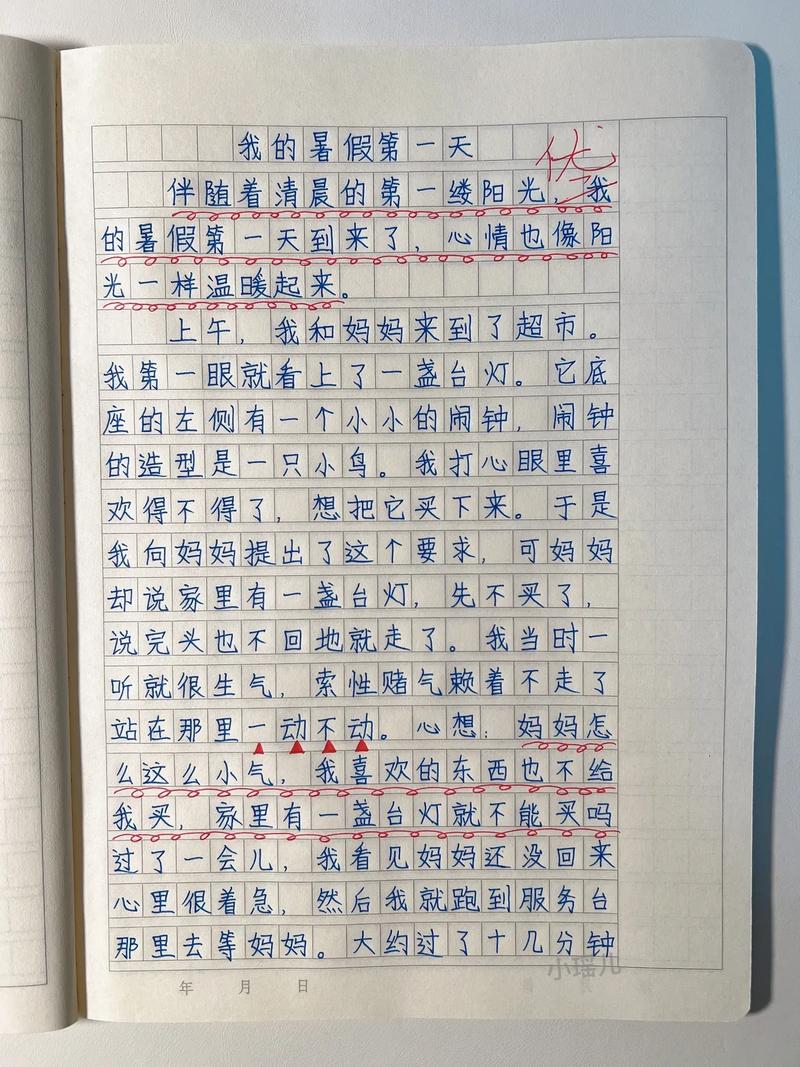 我的暑假第一天
优
伴随着清晨的第一缕阳光，我
的暑假第一天到来了，心情也像阳
光一样温暖起来。
上午，我和妈妈来到了超市。
我第一眼就看上了一盏台灯。它底
座的左侧有一个小小的闹钟，闹钟
的造型是一只小鸟。我打心眼里喜
欢得不得了，想把它买下来。于是
我向妈妈提出了这个要求，可妈妈
却说家里有一盏台灯，先不买了，
说完头也不回地就走了。我当时一
听就很生气，索性赌气赖着不走了
站在那里一动不动。心想：妈妈怎
么这么小气，我喜欢的东西也不给
我买，家里有一盏台灯就不能买吗
过了一会儿，我看见妈妈还没回来
心里很着急，然后我就跑到服务台
那里去等妈妈。大约过了十几分钟
小瑶儿
年 月 日